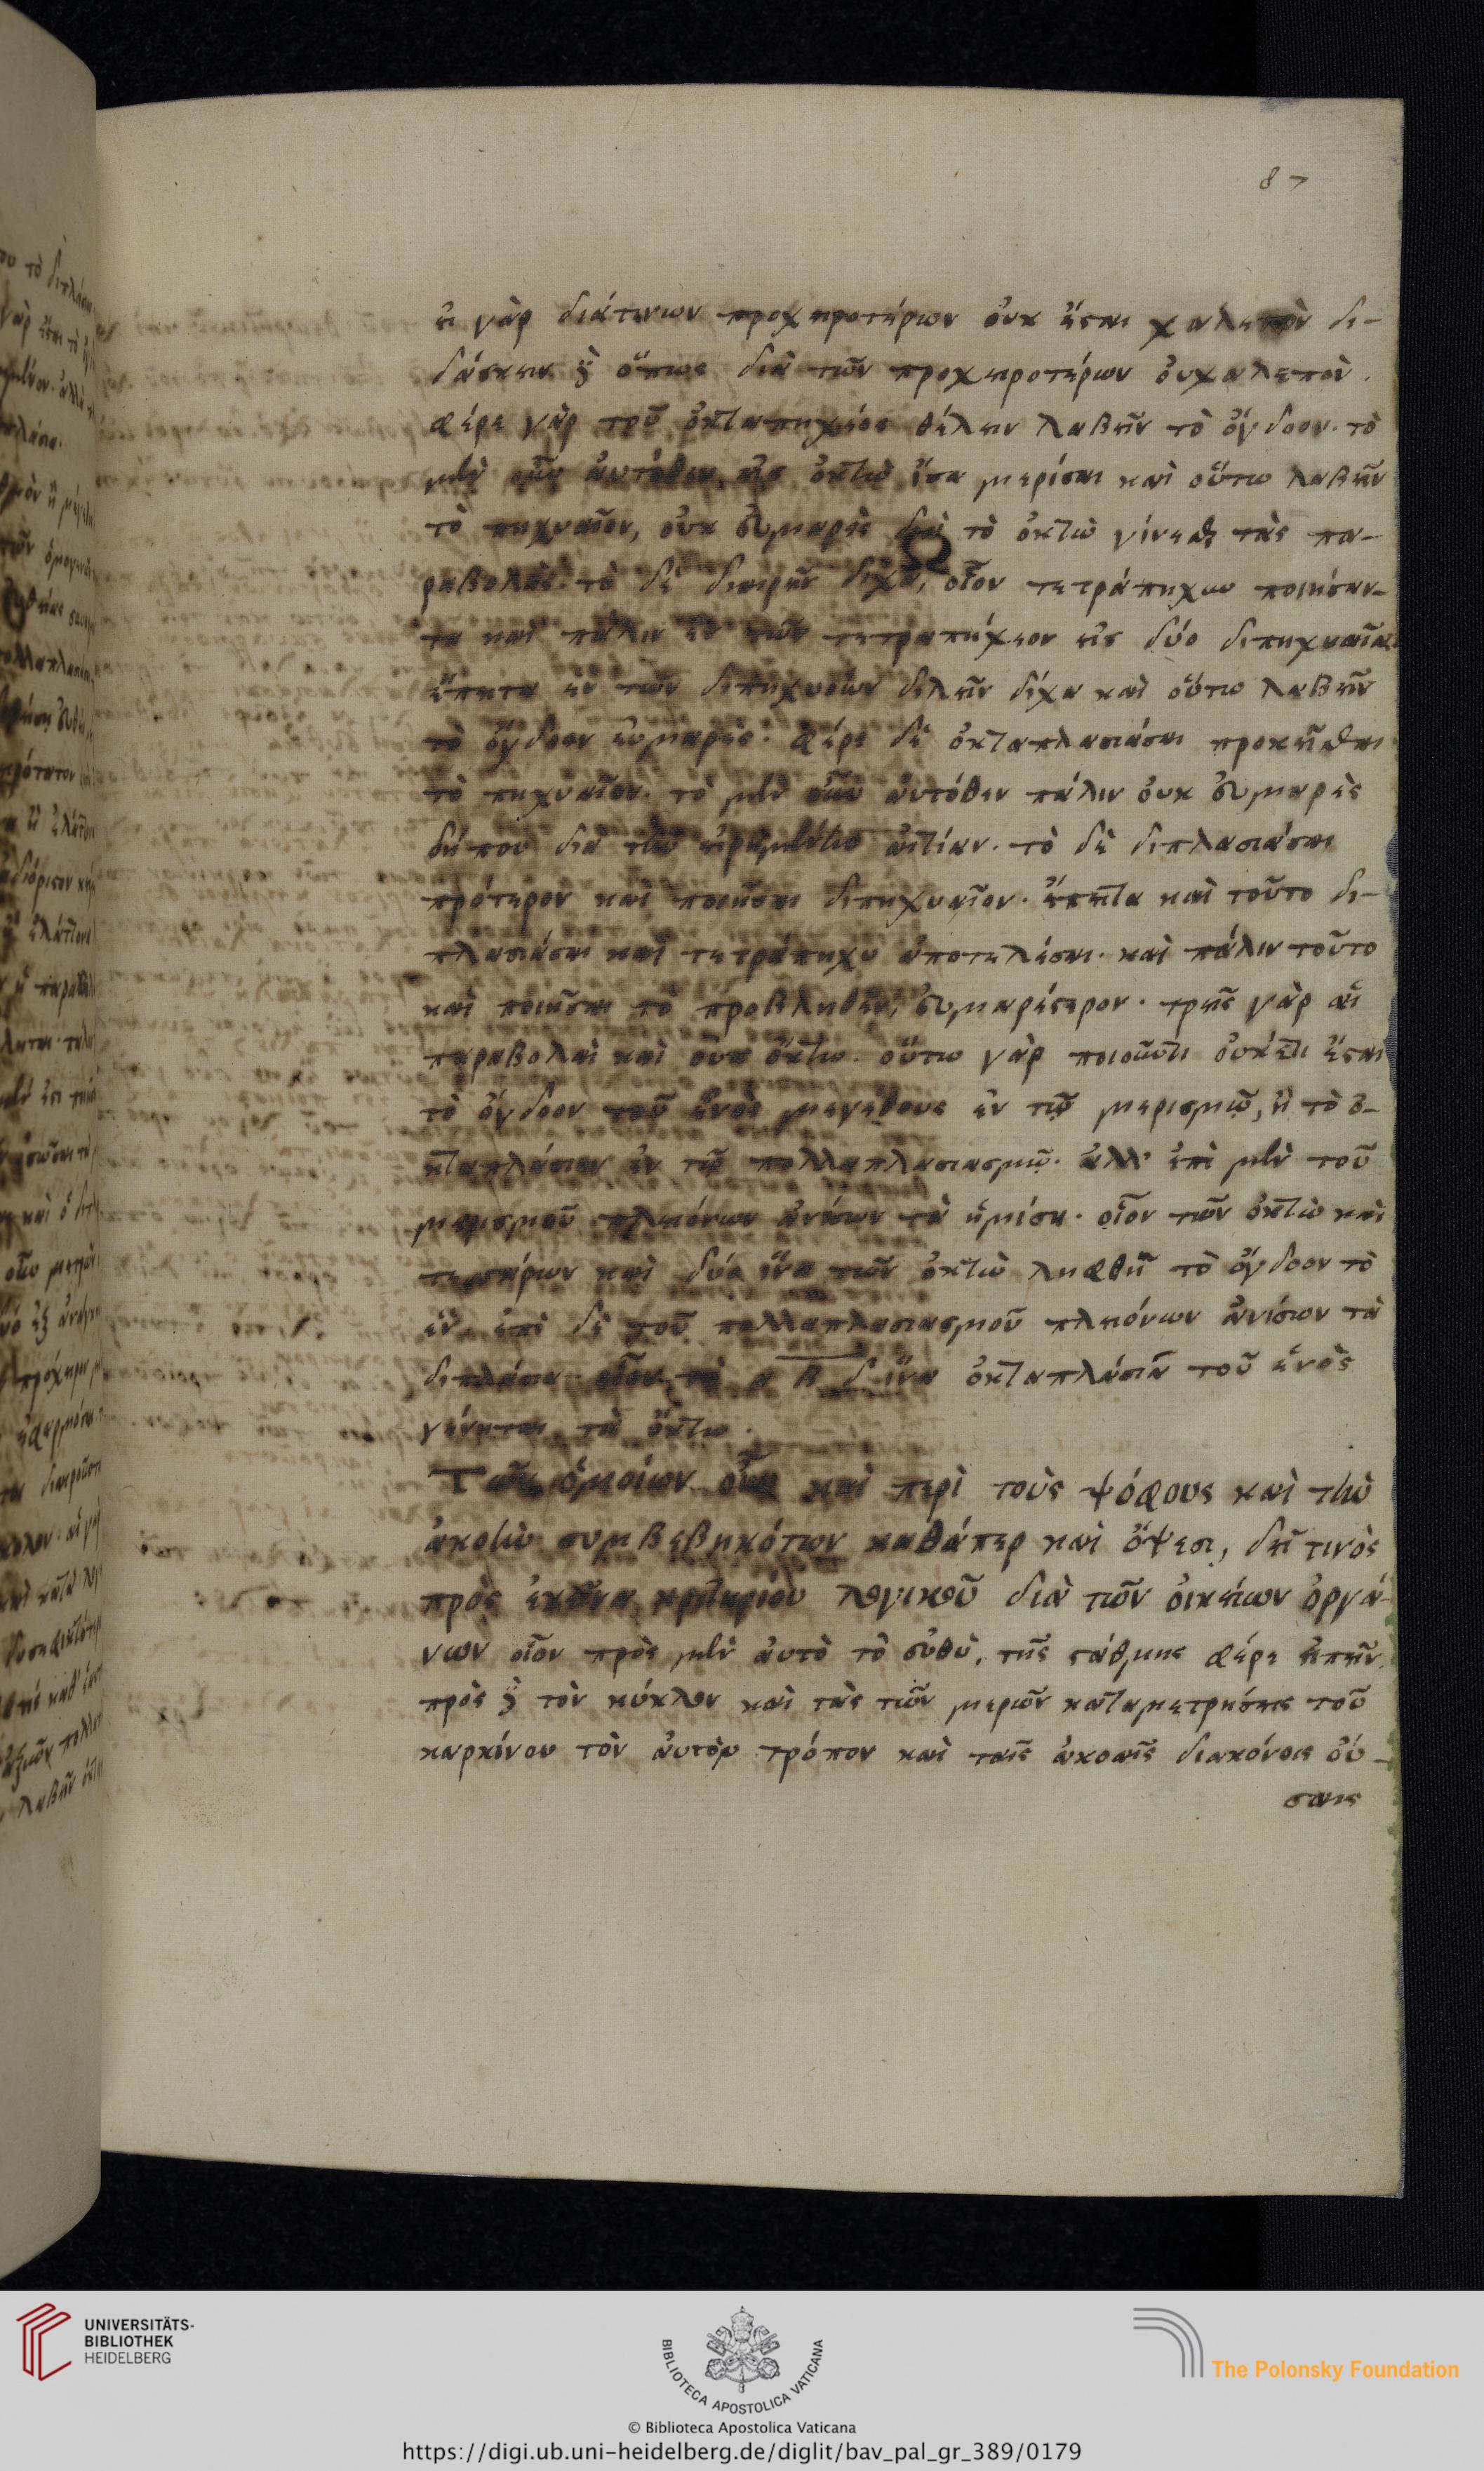 87
εἰ γὰρ διάτινων προχειροτέρων οὐκ ἔσται χαλεπὸν δι-
δάσκειν δὲ ὅπως διὰ τῶν προχειροτέρων οὐχαλεπὸν.
φέρε γὰρ τοῦ ὀκταπήχεος θέλειν λαβεῖν τὸ ὄγδοον. τὸ
μὲν οὖν αὐτόθεν, εἰς ὀκτὼ ἴσα μερίσαι καὶ οὕτω λαβεῖν
τὸ πηχυαῖον, οὐκ εὐμαρὲς διὰ τὸ ὀκτὼ γίνεσθαι τὰς πα-
ραβολάς. τὸ δὲ διαιρεῖν δίχα, οἷον τετράπηχυ ποιήσαν-
τα καὶ πάλιν ἓν τῶν τετραπήχεον εἰς δύο διπηχυαῖα.
ἔπειτα ἓν τῶν διπηχυαίων διελεῖν δίχα καὶ οὕτω λαβεῖν
τὸ ὄγδοον εὐμαρές. φέρε δὲ ὀκταπλασιάσαι προκεῖσθαι
τὸ πηχυαῖον. τὸ μὲν οὖν αὐτόθεν πάλιν οὐκ εὐμαρὲς
δήπου διὰ τὴν εἰρημένην αἰτίαν. τὸ δὲ διπλασιάσαι
πρότερον καὶ ποιῆσαι διπηχυαῖον. ἔπειτα καὶ τοῦτο δι-
πλασιάσαι καὶ τετράπηχυ ἀποτελέσαι. καὶ πάλιν τοῦτο
καὶ ποιῆσαι τὸ προβληθὲν, εὐμαρέστερον. τρεῖς γὰρ αἱ
παραβολαὶ καὶ οὐκ ὀκτω. οὕτω γὰρ ποιοῦντι οὐκέτι ἔσται
τὸ ὄγδοον τοῦ ἑνὸς μεγέθους ἐν τῷ μερισμῷ, ἢ τὸ ὀ-
κταπλάσιον ἐν τῷ πολλαπλασιασμῷ. ἀλλ' ἐπὶ μὲν τοῦ
μερισμοῦ πλειόνων ἀνίσων τὰ ἡμίση. οἷον τῶν ὀκτὼ καὶ
τεσσάρων καὶ δύο ἵνα τῶν ὀκτὼ ληφθῇ τὸ ὄγδοον τὸ
ἕν. ἐπὶ δὲ τοῦ πολλαπλασιασμοῦ πλειόνων ἀνίσων τὰ
διπλάσια. οἷον τὰ α β δ ἵνα ὀκταπλάσια τοῦ ἑνὸς
γένηται τὰ ὀκτω.
Τῶν ὁμοίων οὖν καὶ περὶ τοὺς ψόφους καὶ τὴν
ἀκοὴν συμβεβηκότων καθάπερ καὶ ὄψεσι, δεῖ τινὸς
πρὸς ἐκεῖνα κριτηρίου λογικοῦ διὰ τῶν οἰκείων ὀργά-
νων οἷον πρὸς μὲν αὐτὸ τὸ εὐθὺ, τῆς στάθμης φέρε εἰπεῖν.
πρὸς δὲ τὸν κύκλον καὶ τὰς τῶν μερῶν καταμετρήσεις τοῦ
καρκίνου τὸν αὐτὸν τρόπον καὶ ταῖς ἀκοαῖς διακόνοις οὔ-
σαις
UNIVERSITÄTS-
BIBLIOTHEK
HEIDELBERG
BIBLIOTECA APOSTOLICA VATICANA
The Polonsky Foundation
© Biblioteca Apostolica Vaticana
https://digi.ub.uni-heidelberg.de/diglit/bav_pal_gr_389/0179